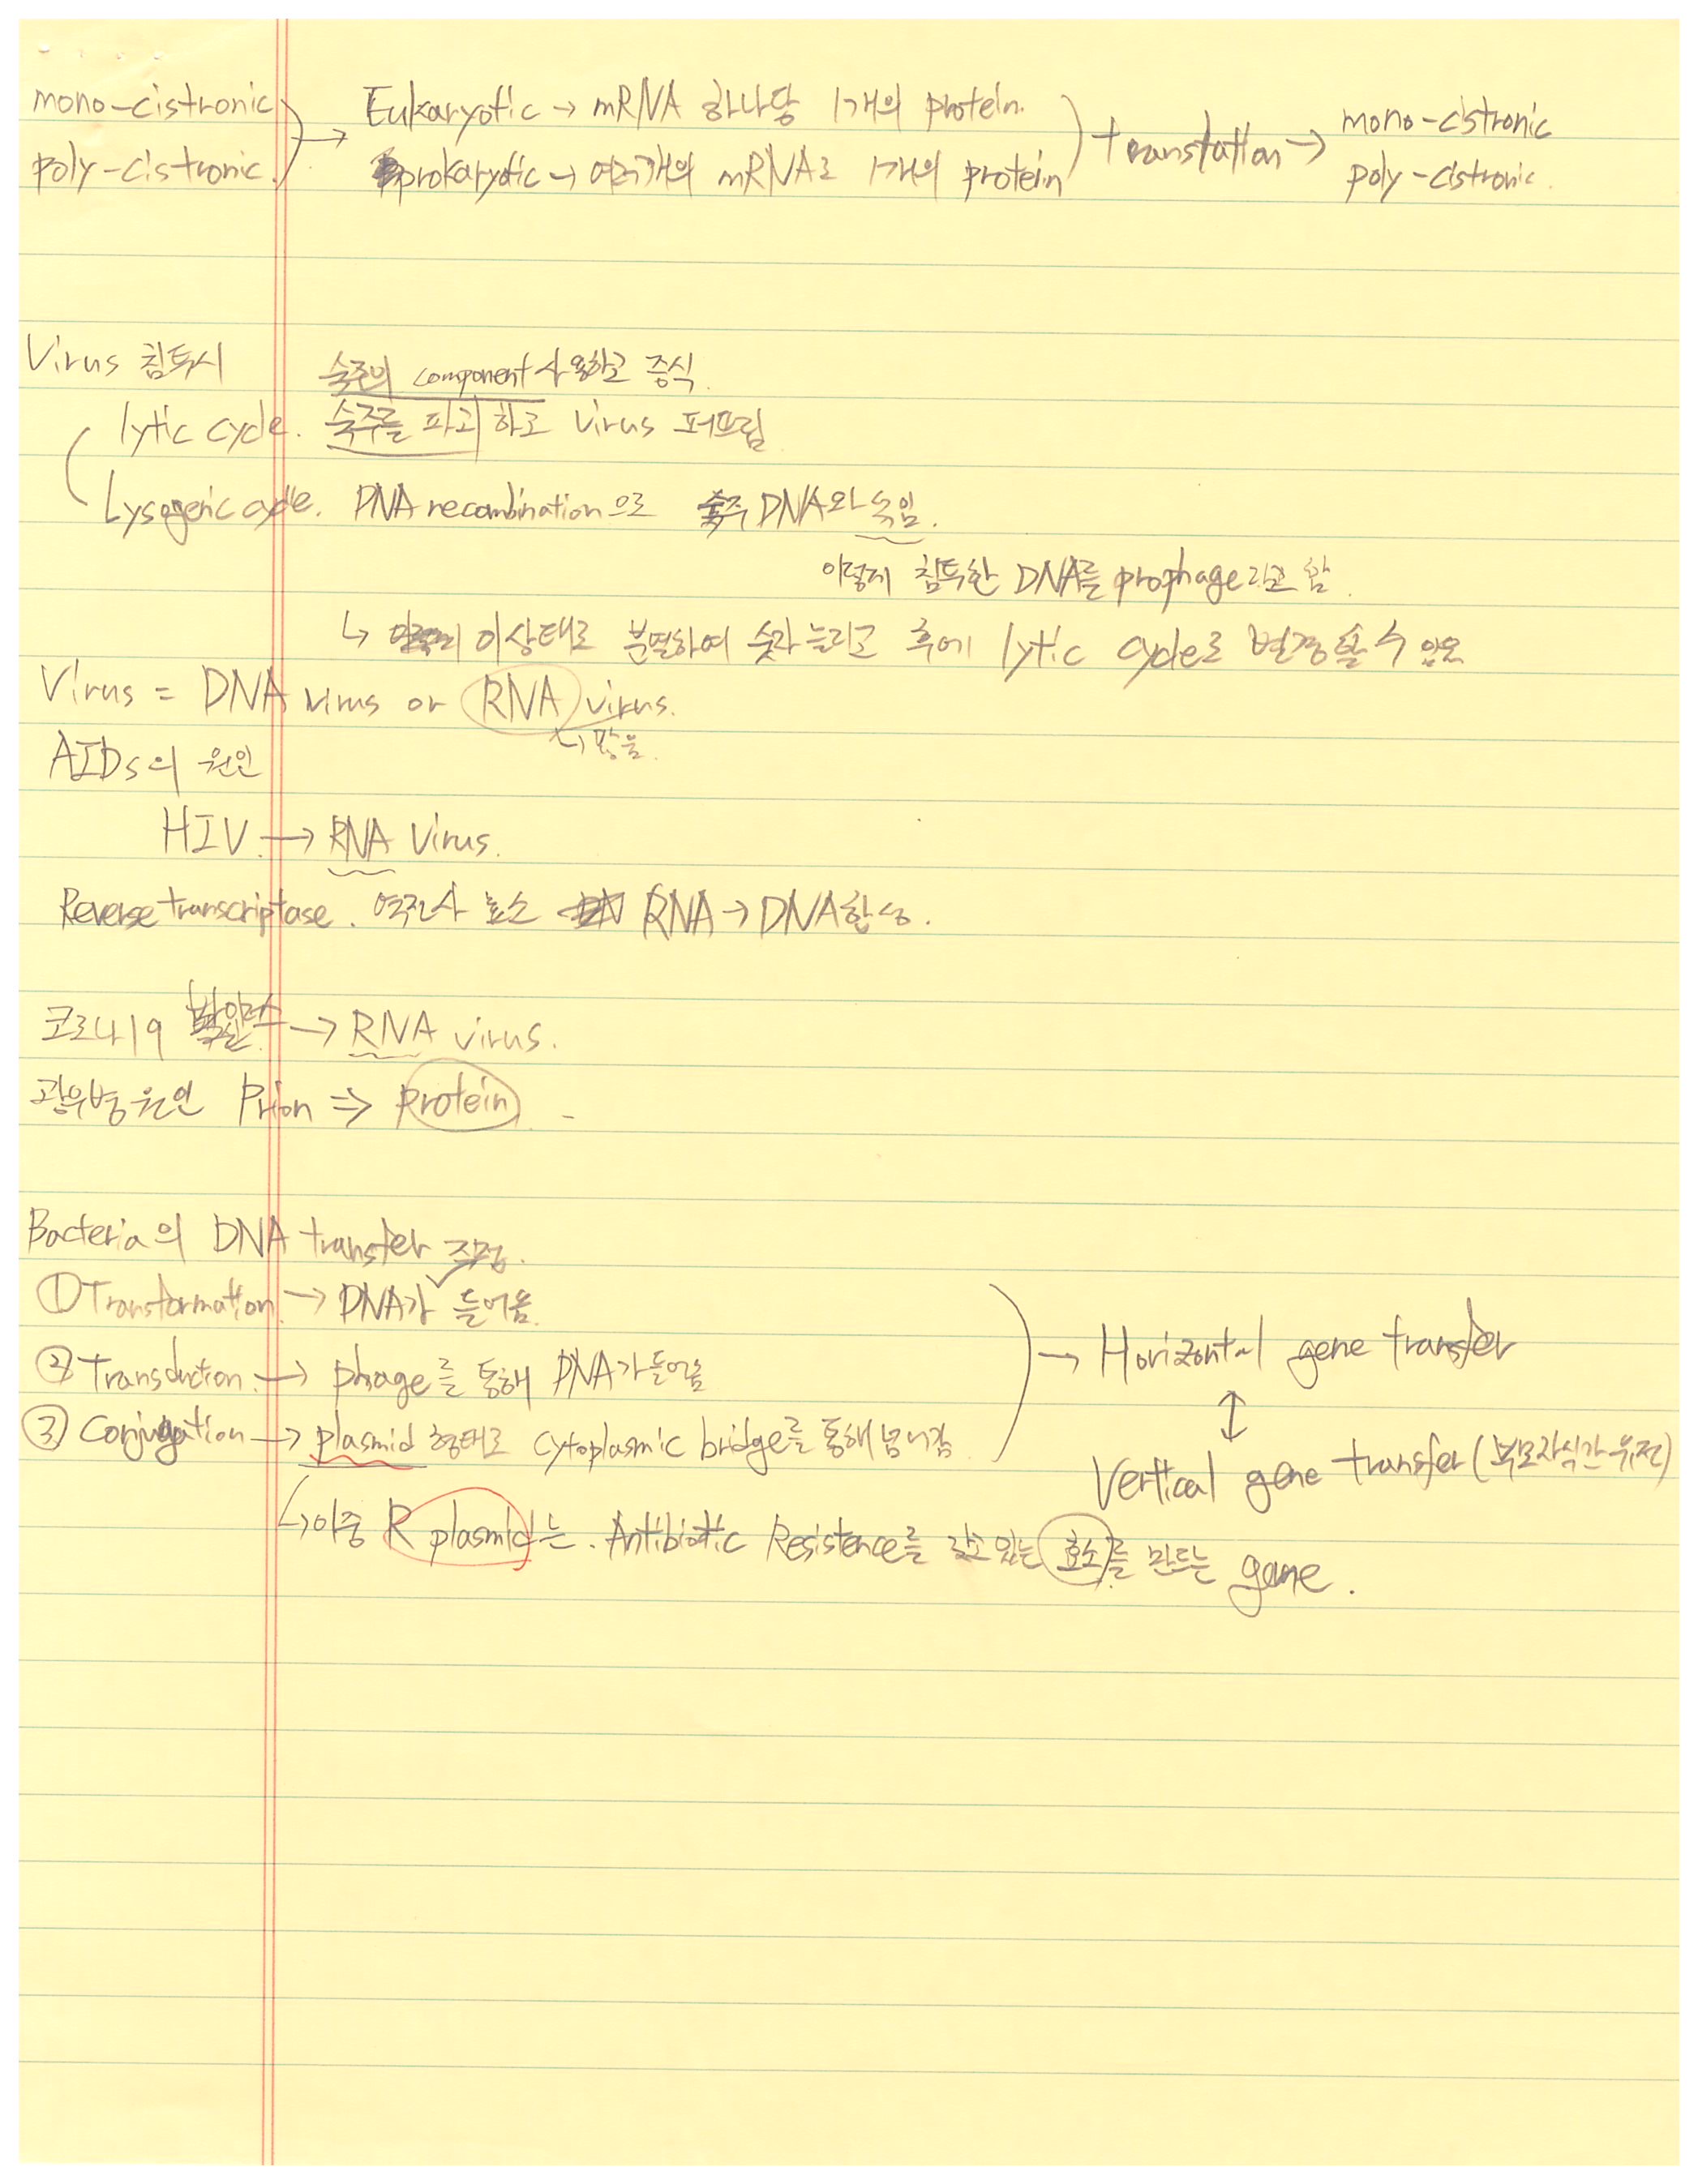 mono-cistronic → Eukaryotic → mRNA 하나당 1개의 protein. translation → mono-cistronic
poly-cistronic. prokaryotic → 여러개의 mRNA로 1개의 protein poly-cistronic.
Virus 침투시 숙주의 component 사용하고 증식.
lytic cycle. 숙주를 파괴하고 virus 퍼뜨림
Lysogenic cycle. DNA recombination으로 숙주 DNA와 섞임.
이렇게 침투한 DNA를 prophage라고 함.
↳ 이상태로 분열하여 숫자 늘리고 후에 lytic cycle로 변경될 수 있음
Virus = DNA virus or RNA virus.
↳ 많음.
AIDs의 원인
HIV → RNA Virus.
Reverse transcriptase. 역전사 효소 RNA → DNA 합성.
코로나19 → RNA virus.
광우병 원인 Prion ⇒ protein
Bacteria의 DNA transfer 과정.
① Transformation → DNA가 들어옴.
② Transduction. → phage를 통해 DNA가 들어옴 → Horizontal gene transfer
↕
③ Conjugation → plasmid 형태로 cytoplasmic bridge를 통해 넘어감 Vertical gene transfer (부모자식간 유전)
↳ 이중 R plasmid는. Antibiotic Resistence를 갖고 있는 효소를 만드는 gene.